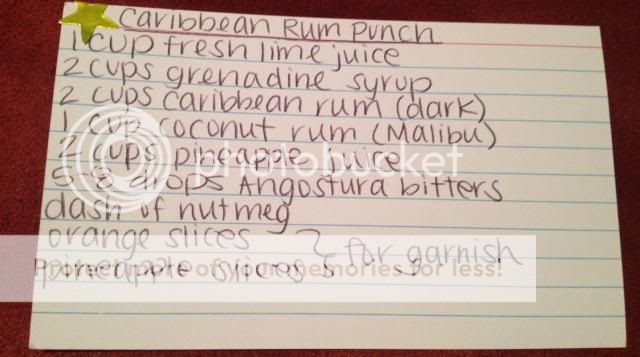 Caribbean Rum Punch
1 cup fresh lime juice
2 cups grenadine syrup
2 cups caribbean rum (dark)
1 cup coconut rum (Malibu)
2 cups pineapple juice
5-8 drops Angostura bitters
dash of nutmeg
orange slices } for garnish
pineapple slices
photobucket
Protect more of your memories for less!